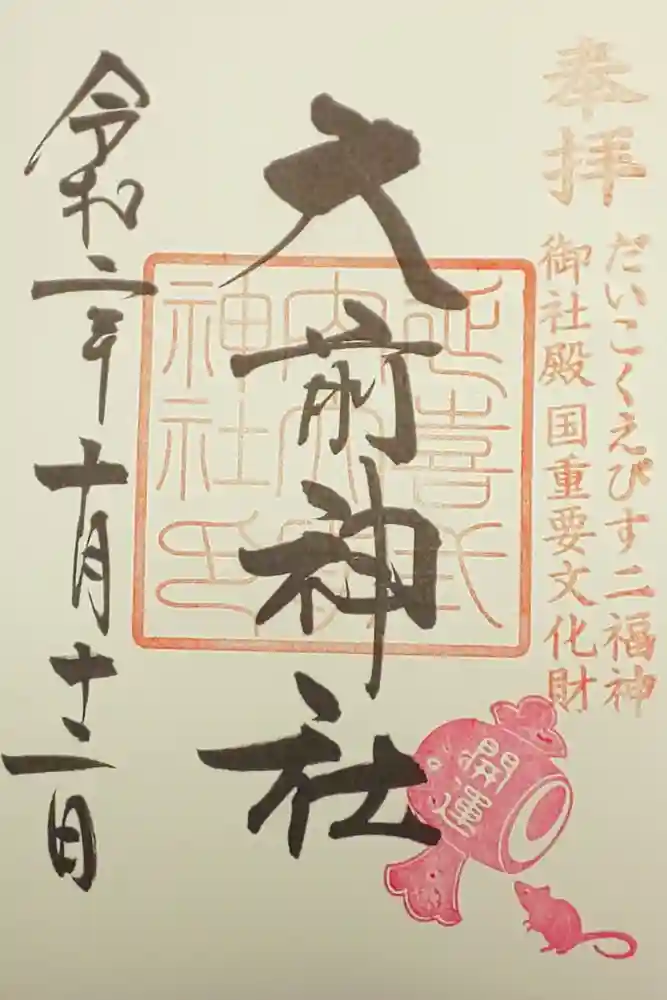 奉拝
だいこくえびす二福神
御社殿 国重要文化財
大前神社
延喜式
内大前
神社印
開運
令和二年十月十二日